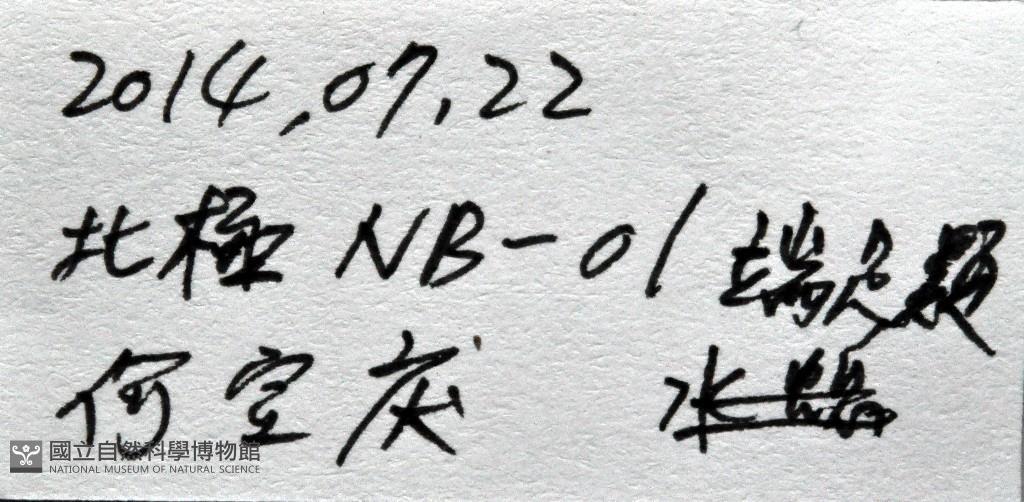 2014.07.22
北極 NB-01 端足類
何宣慶
國立自然科學博物館
NATIONAL MUSEUM OF NATURAL SCIENCE